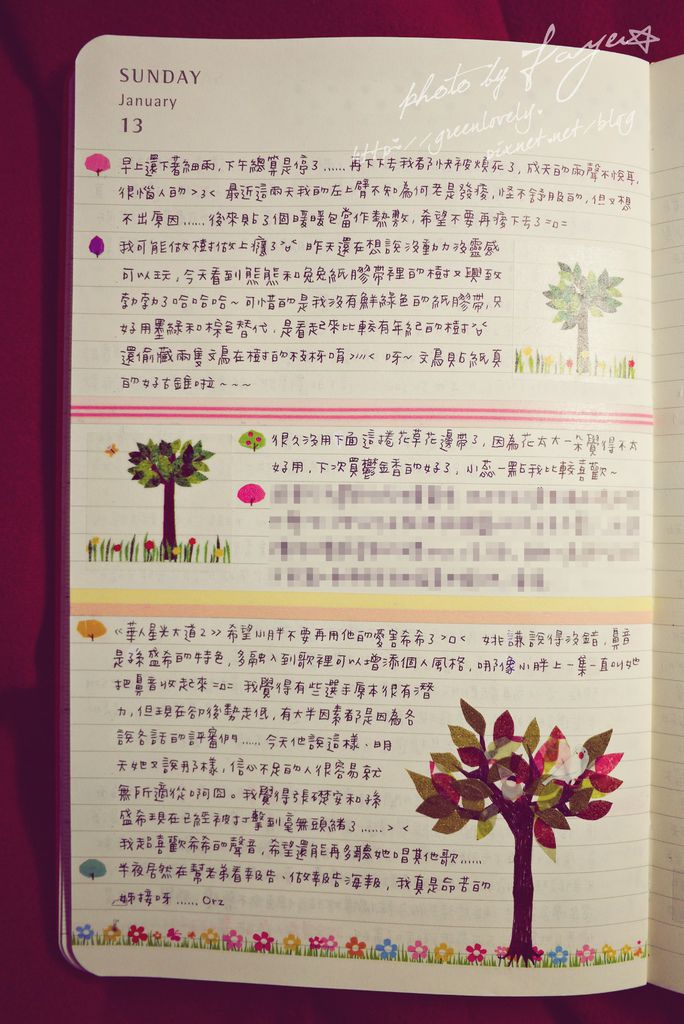 SUNDAY
January
13
photo by Faye
http://greenlovely.
pixnet.net/blog
早上還下著細雨，下午總算是停了......再下下去我都快被煩死了，成天的雨聲不悅耳，
很惱人的>3< 最近這兩天我的左上臂不知為何老是發痠，怪不舒服的，但又想
不出原因......後來貼了個暖暖包當作熱敷，希望不要再痠下去了=o=
我可能做樹做上癮了>"< 昨天還在想說沒動力沒靈感
可以玩，今天看到熊熊和兔兔紙膠帶裡的樹又興致
勃勃了哈哈哈~可惜的是我沒有鮮綠色的紙膠帶，只
好用墨綠和棕色替代，是看起來比較有年紀的樹>"<
還偷藏兩隻文鳥在樹的枝枒唷>///< 呀~文鳥貼紙真
的好古錐啦~~~
很久沒用下面這捲花草花邊帶了，因為花太大一朵覺得不太
好用，下次買鬱金香的好了，小蕊一點我比較喜歡~
《華人星光大道2》希望小胖不要再用他的愛害希希了>o< 姚謙說得沒錯，鼻音
是孫盛希的特色，多融入到歌裡可以增添個人風格，哪像小胖上一集一直叫她
把鼻音收起來=o= 我覺得有些選手原本很有潛
力，但現在卻後勢走低，有大半因素都是因為各
說各話的評審們......今天他說這樣、明
天她又說那樣，信心不足的人很容易就
無所適從啊囧。我覺得張礎安和孫
盛希現在已經被打擊到毫無頭緒了......> <
我超喜歡希希的聲音，希望還能再多聽她唱其他歌......
半夜居然在幫老弟看報告、做報告海報，我真是命苦的
姊接呀......Orz